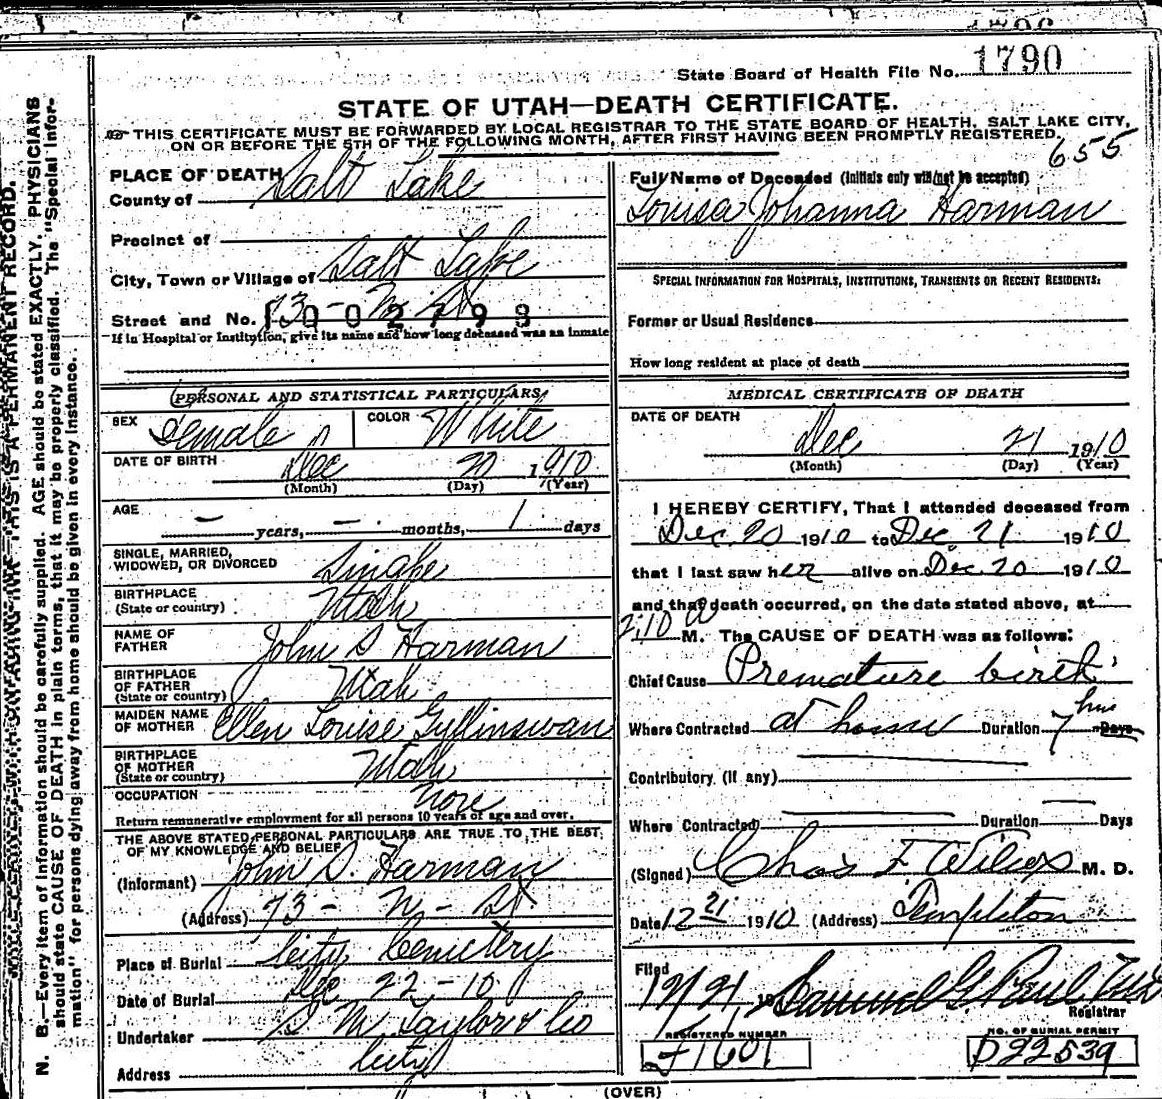 State Board of Health File No. 1790
STATE OF UTAH—DEATH CERTIFICATE.
THIS CERTIFICATE MUST BE FORWARDED BY LOCAL REGISTRAR TO THE STATE BOARD OF HEALTH, SALT LAKE CITY,
ON OR BEFORE THE 5TH OF THE FOLLOWING MONTH, AFTER FIRST HAVING BEEN PROMPTLY REGISTERED.
655
PLACE OF DEATH
County of Salt Lake
Precinct of
City, Town or Village of Salt Lake
Street and No. 73 - N St
1002793
If in Hospital or Institution, give its name and how long deceased was an inmate
PERSONAL AND STATISTICAL PARTICULARS
SEX Female COLOR White
DATE OF BIRTH Dec 20 1910
(Month) (Day) (Year)
AGE — years, — months, 1 days
SINGLE, MARRIED,
WIDOWED, OR DIVORCED Single
BIRTHPLACE
(State or country) Utah
NAME OF
FATHER John S Harman
BIRTHPLACE
OF FATHER
(State or country) Utah
MAIDEN NAME
OF MOTHER Ellen Louise Gyllinswan
BIRTHPLACE
OF MOTHER
(State or country) Utah
OCCUPATION None
Return remunerative employment for all persons 10 years of age and over.
THE ABOVE STATED PERSONAL PARTICULARS ARE TRUE TO THE BEST
OF MY KNOWLEDGE AND BELIEF
(Informant) John S. Harman
(Address) 73 - N - St
Place of Burial City Cemetery
Date of Burial Dec 22 - 10
Undertaker S M Taylor & Co
Address City
Full Name of Deceased (Initials only will not be accepted)
Louisa Johanna Harman
SPECIAL INFORMATION FOR HOSPITALS, INSTITUTIONS, TRANSIENTS OR RECENT RESIDENTS:
Former or Usual Residence
How long resident at place of death
MEDICAL CERTIFICATE OF DEATH
DATE OF DEATH
Dec 21 1910
(Month) (Day) (Year)
I HEREBY CERTIFY, That I attended deceased from
Dec. 20 1910 to Dec 21 1910
that I last saw her alive on Dec. 20 1910
and that death occurred, on the date stated above, at
2.10 a M. The CAUSE OF DEATH was as follows:
Chief Cause Premature birth
Where Contracted at home Duration 7 hrs Days
Contributory (If any)
Where Contracted Duration — Days
(Signed) Chas F Wilcox M. D.
Date 12 21 1910 (Address) Templeton
Filed
12/21 19 Samuel G Paul
Registrar
REGISTERED NUMBER
1601
NO. OF BURIAL PERMIT
D22539
(OVER)
N. B.—Every item of information should be carefully supplied. AGE should be stated EXACTLY. PHYSICIANS
should state CAUSE OF DEATH in plain terms, that it may be properly classified. The "Special Infor-
mation" for persons dying away from home should be given in every instance.
THIS IS A PERMANENT RECORD.